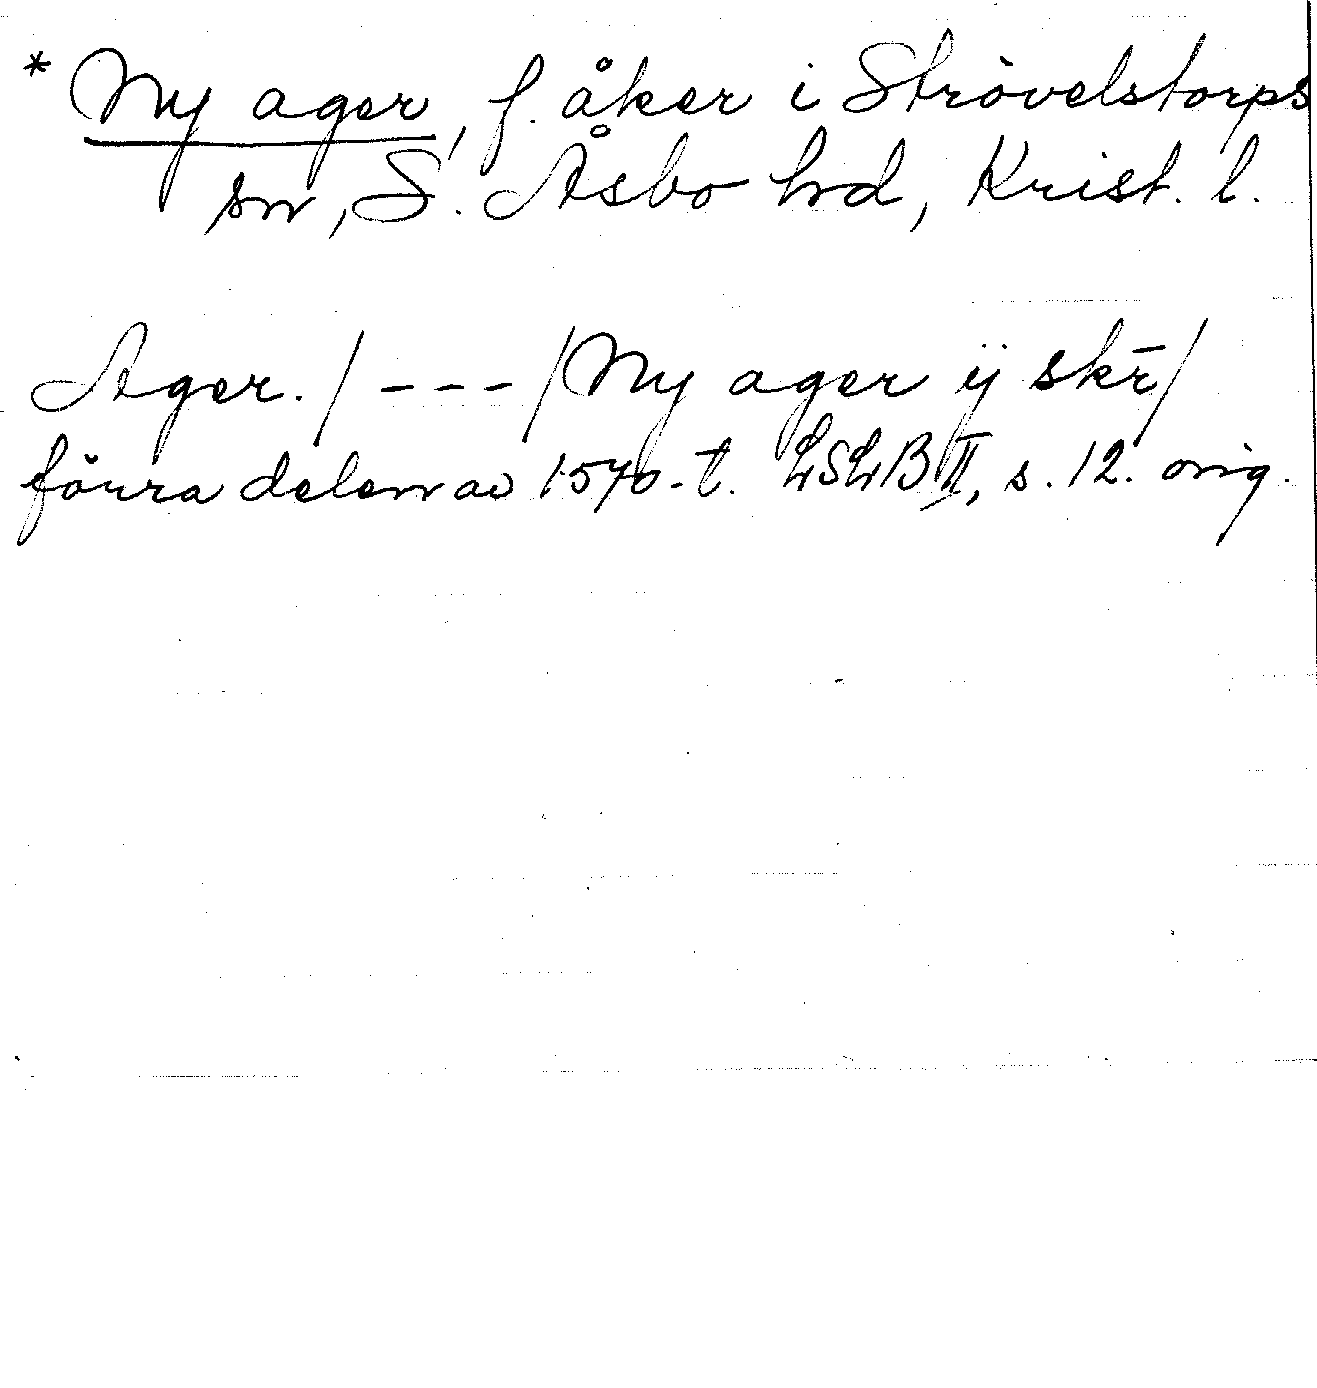 * Ny ager, f. åker i Strövelstorps
sn, S. Åsbo hd, Krist. l.
Ager. / - - - / Ny ager ij skr̄ /
förra delen av 1570-t. LSLB II, s. 12. orig.